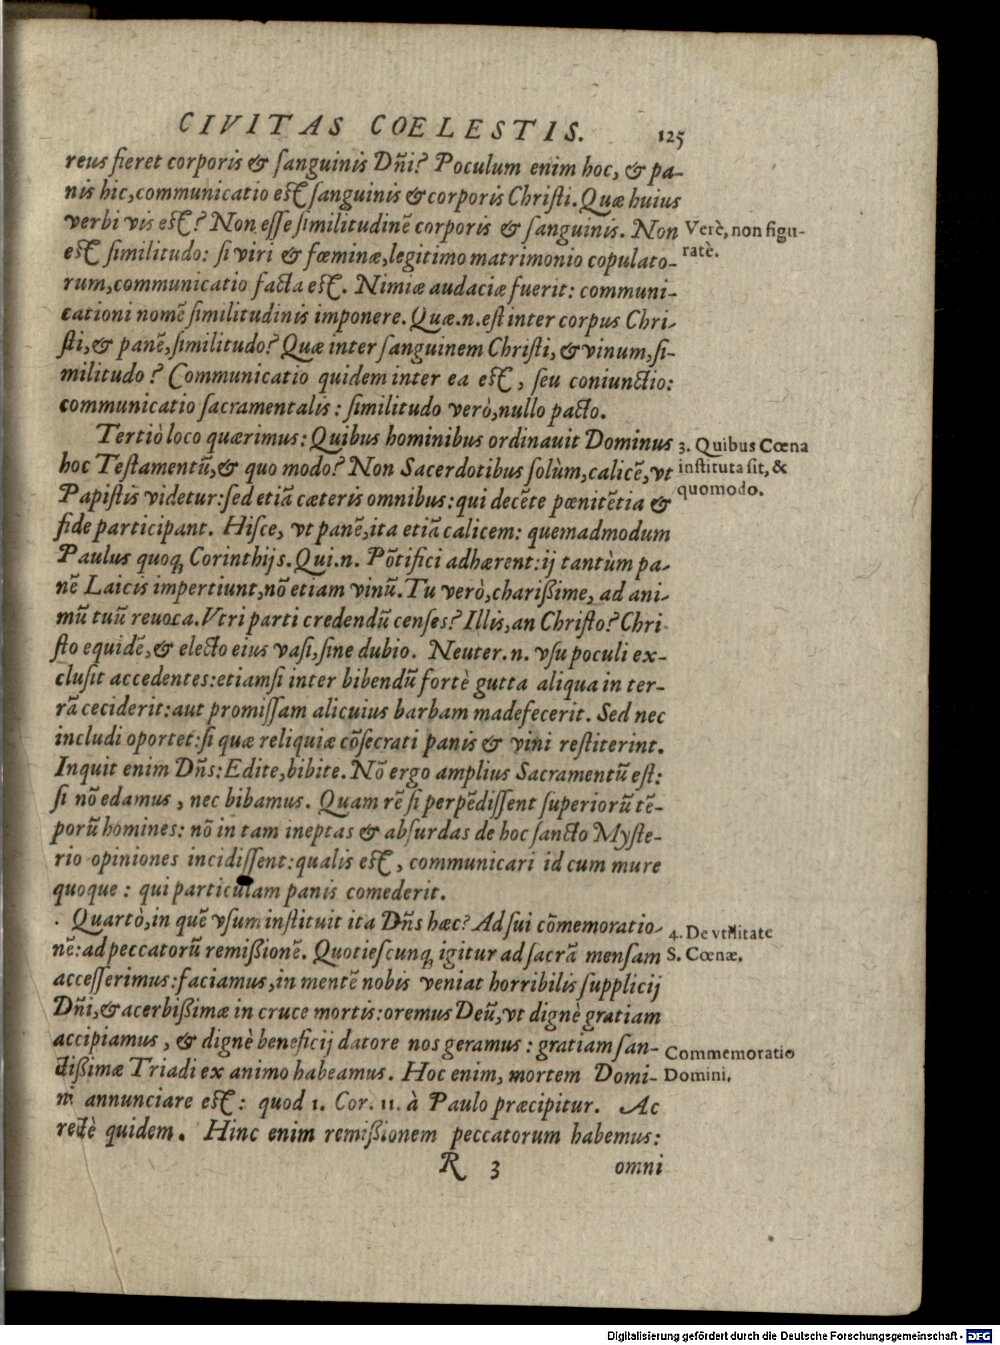 CIVITAS COELESTIS. 125
reus fieret corporis & ſanguinis Dñi? Poculum enim hoc, & pa-
nis hic, communicatio eſt ſanguinis & corporis Chriſti. Quæ huius
verbi vis eſt? Non eſſe ſimilitudinē corporis & ſanguinis. Non
Verè, non figu-
eſt ſimilitudo: ſi viri & fœminæ, legitimo matrimonio copulato-
ratè.
rum, communicatio facta eſt. Nimiæ audaciæ fuerit: communi-
cationi nomē ſimilitudinis imponere. Quæ.n. eſt inter corpus Chri-
ſti, & panē, ſimilitudo? Quæ inter ſanguinem Chriſti, & vinum, ſi-
militudo? Communicatio quidem inter ea eſt, ſeu coniunctio:
communicatio ſacramentalis: ſimilitudo verò, nullo pacto.
Tertiò loco quærimus: Quibus hominibus ordinauit Dominus
3. Quibus Cœna
hoc Teſtamentū, & quo modo? Non Sacerdotibus ſolùm, calicē, vt
inſtituta ſit, &
Papiſtis videtur: ſed etiā cæteris omnibus: qui decēte pœnitētia &
quomodo.
fide participant. Hiſce, vt panē, ita etiā calicem: quemadmodum
Paulus quoq; Corinthijs. Qui.n. Pōtifici adhærent: ij tantùm pa-
nē Laicis impertiunt, nō etiam vinū. Tu verò, charißime, ad ani-
mū tuū reuoca. Vtri parti credendū cenſes? Illis, an Chriſto? Chri-
ſto equidē, & electo eius vaſi, ſine dubio. Neuter.n. vſu poculi ex-
cluſit accedentes: etiamſi inter bibendū fortè gutta aliqua in ter-
rā ceciderit: aut promiſſam alicuius barbam madefecerit. Sed nec
includi oportet: ſi quæ reliquiæ cōſecrati panis & vini reſtiterint.
Inquit enim Dñs: Edite, bibite. Nō ergo amplius Sacramentū eſt:
ſi nō edamus, nec bibamus. Quam rē ſi perpēdiſſent ſuperiorū tē-
porū homines: nō in tam ineptas & abſurdas de hoc ſancto Myſte-
rio opiniones incidiſſent: qualis eſt, communicari id cum mure
quoque: qui particulam panis comederit.
Quartò, in quē vſum inſtituit ita Dñs hæc? Ad ſui cōmemoratio-
4. De vtilitate
nē: ad peccatorū remißionē. Quotieſcunq; igitur ad ſacrā menſam
S. Cœnæ.
acceſſerimus: faciamus, in mentē nobis veniat horribilis ſupplicij
Dñi, & acerbißimæ in cruce mortis: oremus Deū, vt dignè gratiam
accipiamus, & dignè beneficij datore nos geramus: gratiam ſan-
Commemoratio
ctißimæ Triadi ex animo habeamus. Hoc enim, mortem Domi-
Domini.
ni annunciare eſt: quod 1. Cor. 11. à Paulo præcipitur. Ac
rectè quidem. Hinc enim remißionem peccatorum habemus:
R 3 omni
Digitalisierung gefördert durch die Deutsche Forschungsgemeinschaft - DFG